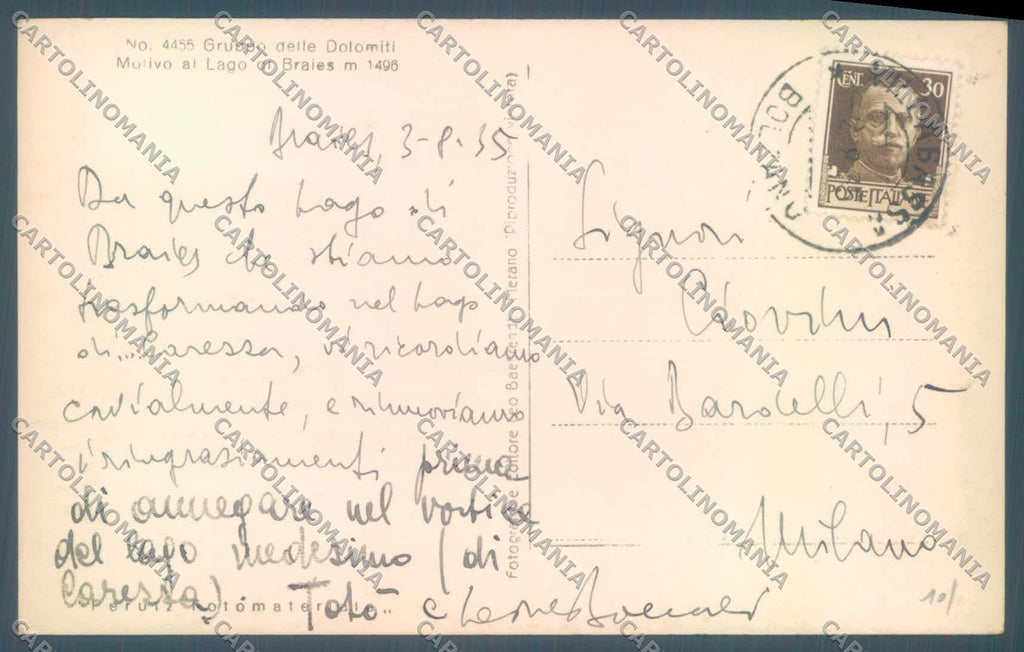 No. 4455 Gruppo delle Dolomiti
Motivo al Lago di Braies m 1496
Braies, 3-8-35
Da questo Lago di
Braies che stiamo
trasformando nel Lago
di... Caressa, vi ricordiamo
cordialmente, e rinnoviamo
i ringraziamenti prima
di annegare nel vortice
del lago medesimo (di
Caressa). Totò e
Signori
Via Bardelli, 5
Milano
CENT. 30
POSTE ITALIANE
BOLZANO
Merano
Peruiz Fotomaterial
10/
CARTOLINOMANIA